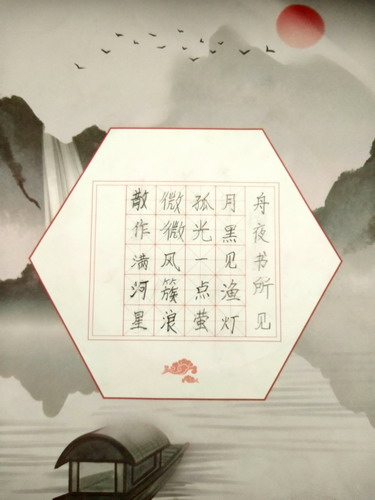 舟夜书所见
月黑见渔灯
孤光一点萤
微微风簇浪
散作满河里